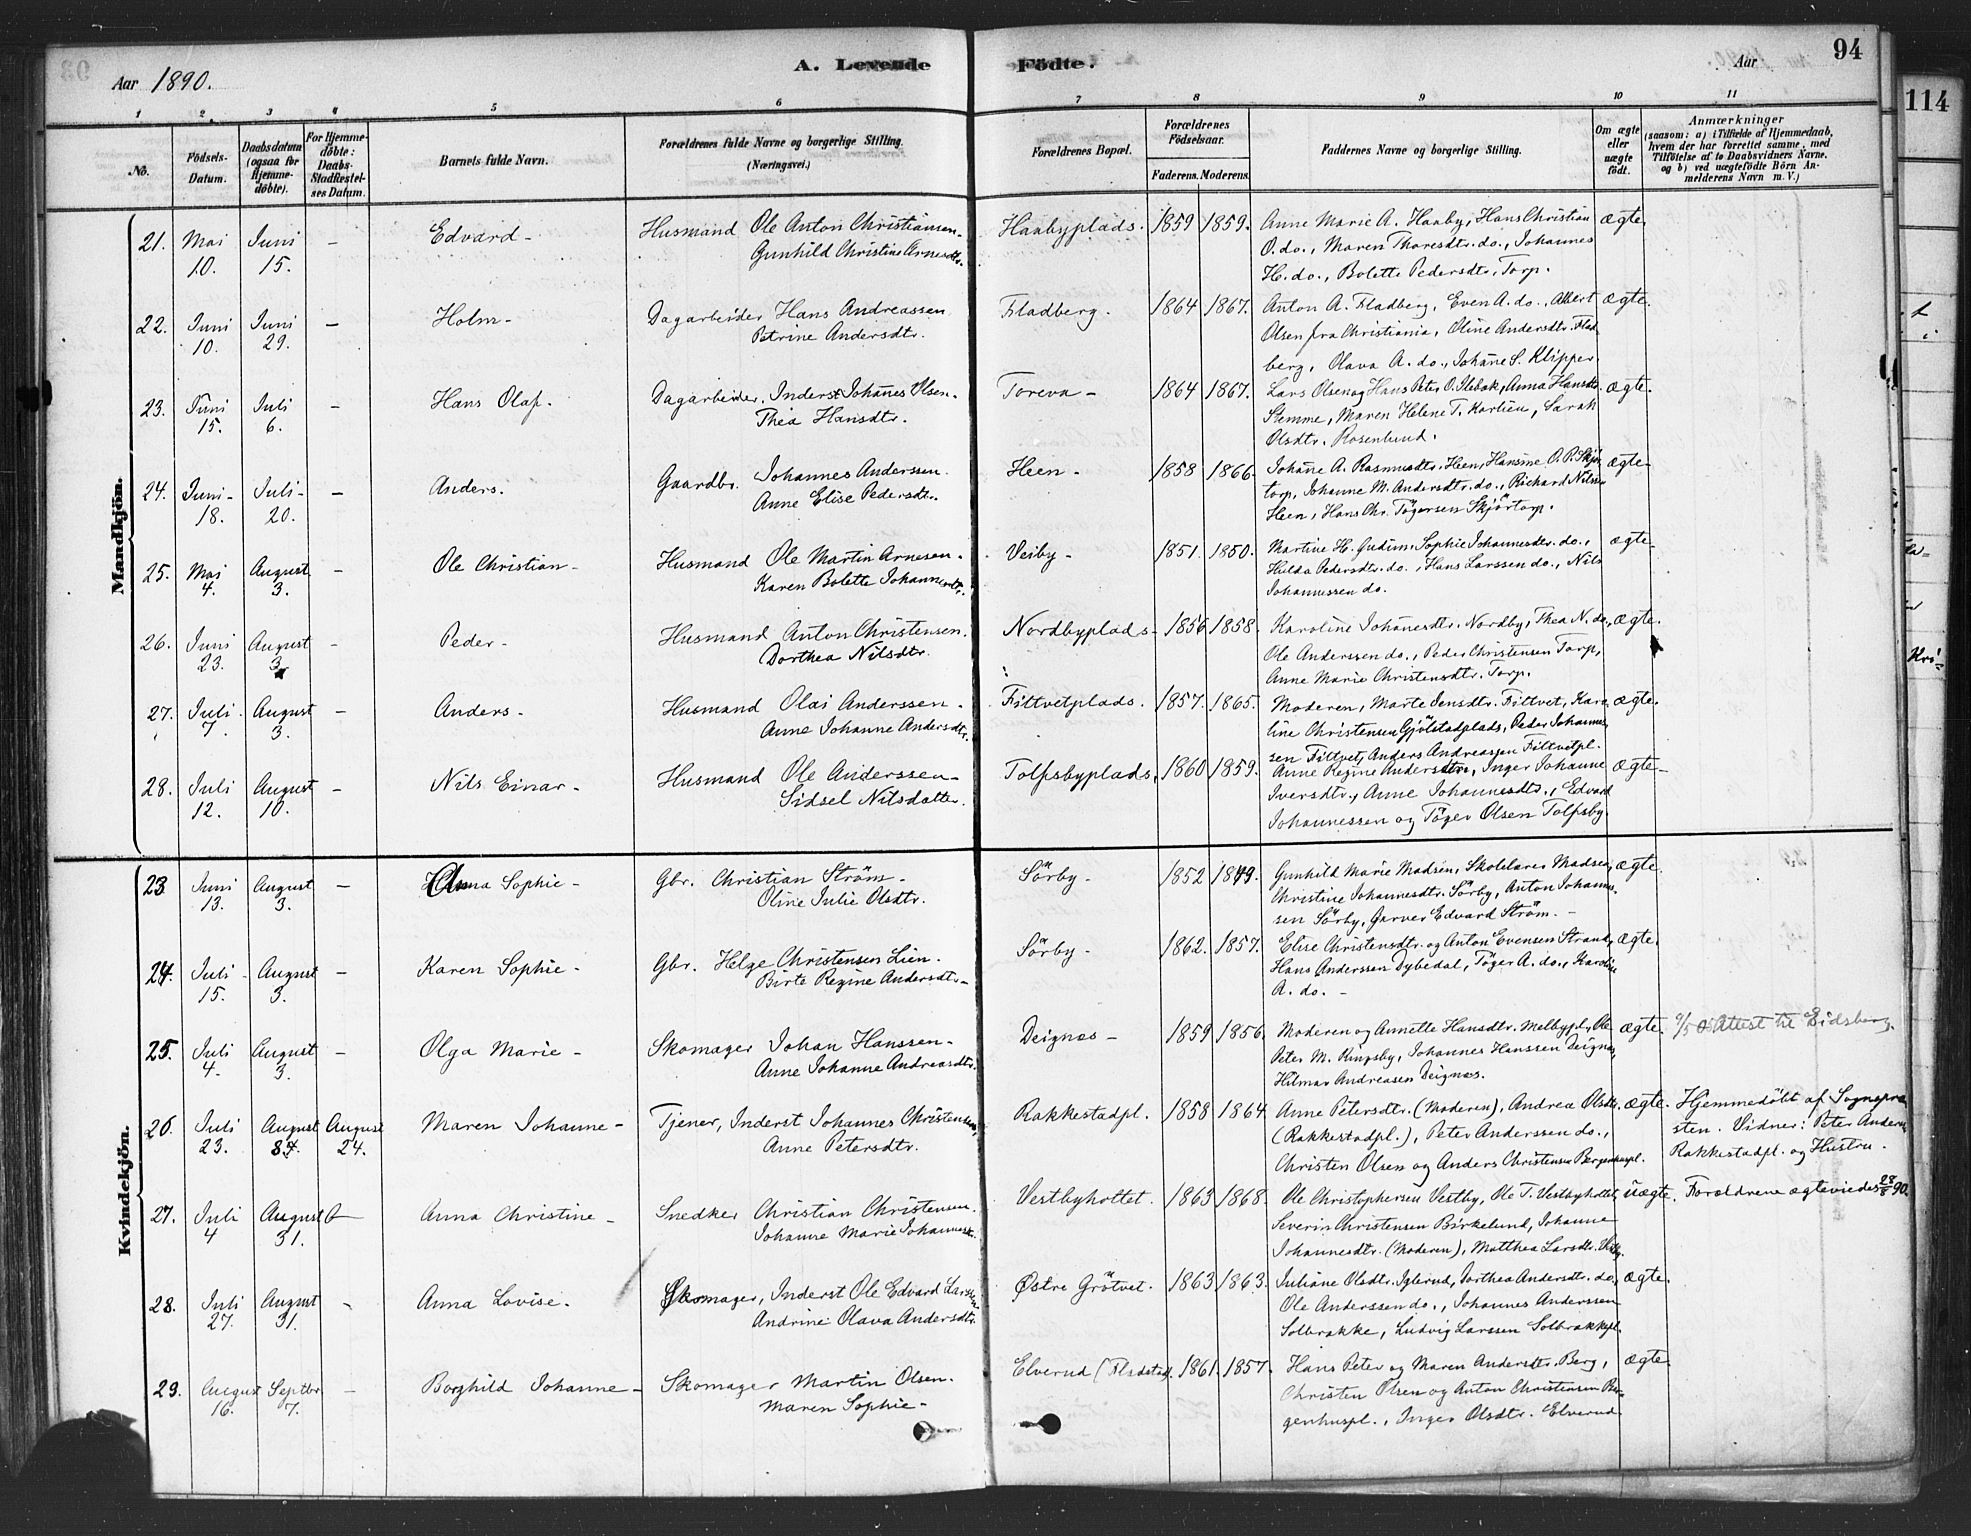 Aar 1890.
A. Levende Fødte.
Aar
94
114
1 2 3 4 5 6 7 8 9 10 11
No.
Födsels-Datum.
Daabsdatum (ogsaa for Hjemme-döbte).
For Hjemme-döbte: Daabs-Stadfæstel-ses Datum.
Barnets fulde Navn.
Forældrenes fulde Navne og borgerlige Stilling. (Næringsvei.)
Forældrenes Bopæl.
Forældrenes Födselsaar.
Faderens. Moderens.
Faddernes Navne og borgerlige Stilling.
Om ægte eller uægte født.
Anmærkninger
(saasom: a) i Tilfælde af Hjemmedaab, hvem der har forrettet samme, med Tilföielse af to Daabsvidners Navne. og b) ved uægtefödte Börn An-melderens Navn m. V.)
Mandkjön.
21. Mai 10. Juni 15. – Edvard – Husmand Ole Anton Christiansen – Gunhild Christine Arnesdtr. Haabyplads. 1859 1859. Anne Marie A. Haaby, Hans Christian
O. do., Maren Thoresdtr. do., Johannes
H. do., Bolette Pedersdtr. Torp. ægte
22. Juni 10. Juni 29. – Holm – Dagarbeider Hans Andreassen Petrine Andersdtr. Fladberg. 1864 1867. Anton A. Fladberg, Even A. do., Albert
Olsen fra Christiania, Oline Andersdtr. Flad
berg, Olava A. do., Johane S. Klipper. ægte.
23. Juni 15. Juli 6. – Hans Olaf. Dagarbeider, Inderst Johanes Olsen. Thea Hansdtr. Toreva – 1864 1867. Lars Olsen og Hans Peter O. Ilebak, Anna Hansdtr.
Stemme, Maren Helene T. Karlien, Sarah
Olsdtr. Rosenlund. ægte.
24. Juni – 18. Juli – 20. – Anders. Gaardbr. Johannes Anderssen. Anne Elise Pedersdtr. Heen – 1858 1866. Johane A. Rasmusdtr. Heen, Hansine O. P. Skjör
torp, Johanne M. Andersdtr. do., Richard Nilsen
Heen, Hans Chr. Tögersen Skjörtorp. ægte
25. Mai 4. August 3. – Ole Christian – Husmand Ole Martin Arnesen – Karen Bolette Johannesdtr. Veiby – 1851. 1850. Martine H. Gudim, Sophie Johannesdtr. do.,
Hulda Pedersdtr. do., Hans Larssen do., Nils
Johannessen do. ægte
26. Juni 23. August 3. – Peder – Husmand Anton Christensen. Dorthea Nilsdtr. Nordbyplads – 1856 1858. Karoline Johanesdtr. Nordby, Thea N. do.,
Ole Anderssen do., Peder Christensen Torp,
Anne Marie Christensdtr. Torp. ægte.
27. Juli 7. August 3. – Anders – Husmand Olai Anderssen – Anne Johanne Andersdtr. Fittvetplads. 1857. 1865. Moderen, Marte Jensdtr. Fittvet, Karo
line Christensen Gjölstadplads, Peder Johannes
sen Fittvet, Anders Andreassen Fittvetpl. ægte.
28. Juli 12. August 10. – Nils Einar – Husmand Ole Anderssen – Sidsel Nilsdatter. Tolfsbyplads, 1860 1859. Anne Regine Andersdtr., Inger Johanne
Iversdtr., Anne Johannesdtr., Edvard
Johannessen og Töger Olsen Tolfsby. ægte –
Kvindekjön.
23 Juni 13. August 3. – Anna Sophie – Gbr. Christian Ström – Oline Julie Olsdtr. Sörby – 1852 1849. Gunhild Marie Madsen, Skolelærer Madsen,
Christine Johannesdtr. Sörby, Anton Johannes
sen Sörby, Garver Edvard Ström. – ægte.
24. Juli 15. August 3. – Karen Sophie – Gbr. Helge Christensen Lien. Birte Regine Andersdtr. – Sörby – 1862. 1857. Elise Christensdtr. og Anton Evensen Strand,
Hans Anderssen Dybedal, Töger A. do., Karoline
A. do. – ægte.
25. Juli 4. August 3. – Olga Marie – Skomager Johan Hanssen – Anne Johanne Andreasdtr. Deignæs – 1859 1856. Moderen og Annette Hansdtr. Melbypl., Ole
Peter M. Ringsby, Johannes Hanssen Deignæs,
Hilmar Andreasen Deignæs. ægte. Attest til Eidsberg.
26. Juli 23. August August 24. Maren Johanne – Tjener, Inderst Johannes Christensen, Anne Petersdtr. Rakkestadpl. 1858 1864. Anne Petersdtr. (Moderen), Andrea Olsdtr.
(Rakkestadpl.), Peter Anderssen do.,
Christen Olsen og Anders Christensen Bergenhuspl. ægte. Hjemmedöbt af Sognepræ
sten. Vidner: Peter Anders.
Rakkestadpl. og Hustru.
27. Juli 4 August 31. Anna Christine – Snedker Christian Christensen. Johanne Marie Johannesdtr. Vestbyhottet. 1863 1868. Ole Christophersen Vestby, Ole T. Vestbyhottet,
Severin Christensen Birkelund, Johanne
Johannesdtr. (Moderen), Matthea Larsdtr. uægte. Forældrene ægteviedes 28/8 90.
28. Juli 27. August 31. – Anna Lovise. Skomager, Inderst Ole Edvard Larssen Andrine Olava Andersdtr. Østre Grötvet. 1863 1863. Juliane Olsdtr. Iglerud, Dorthea Andersdtr. do.,
Ole Anderssen do., Johannes Anderssen
Solbrække, Ludvig Larssen Solbrækkepl. ægte.
29. August 16. Septbr. 7. – Borghild Johanne – Skomager Martin Olsen. Maren Sophie – Elverud (Fladstad). 1861. 1857. Hans Peter og Maren Andersdtr. Berg,
Christen Olsen og Anton Christensen Ber-
genhuspl., Inger Olsdtr. Elverud. ægte.